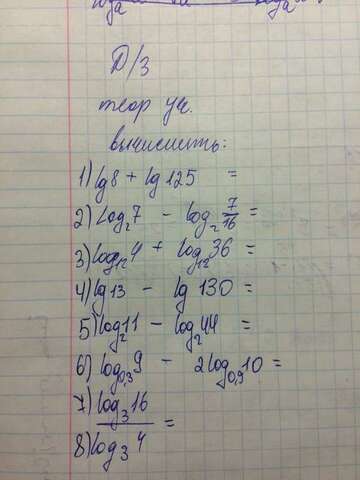 Д/З
теор уч.
вычислить:
1) lg 8 + lg 125 =
2) log₂ 7 - log₂ 7/16 =
3) log₁₂ 4 + log₁₂ 36 =
4) lg 13 - lg 130 =
5) log₂ 11 - log₂ 44 =
6) log₀,₃ 9 - 2 log₀,₃ 10 =
7) log₃ 16
8) log₃ 4 =